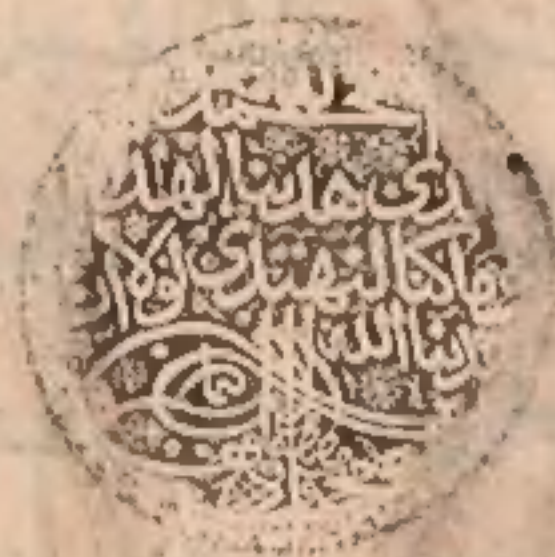 الحمد
لذی هدینا لهذا
وما كنا لنهتدی لولا ان
هدینا الله